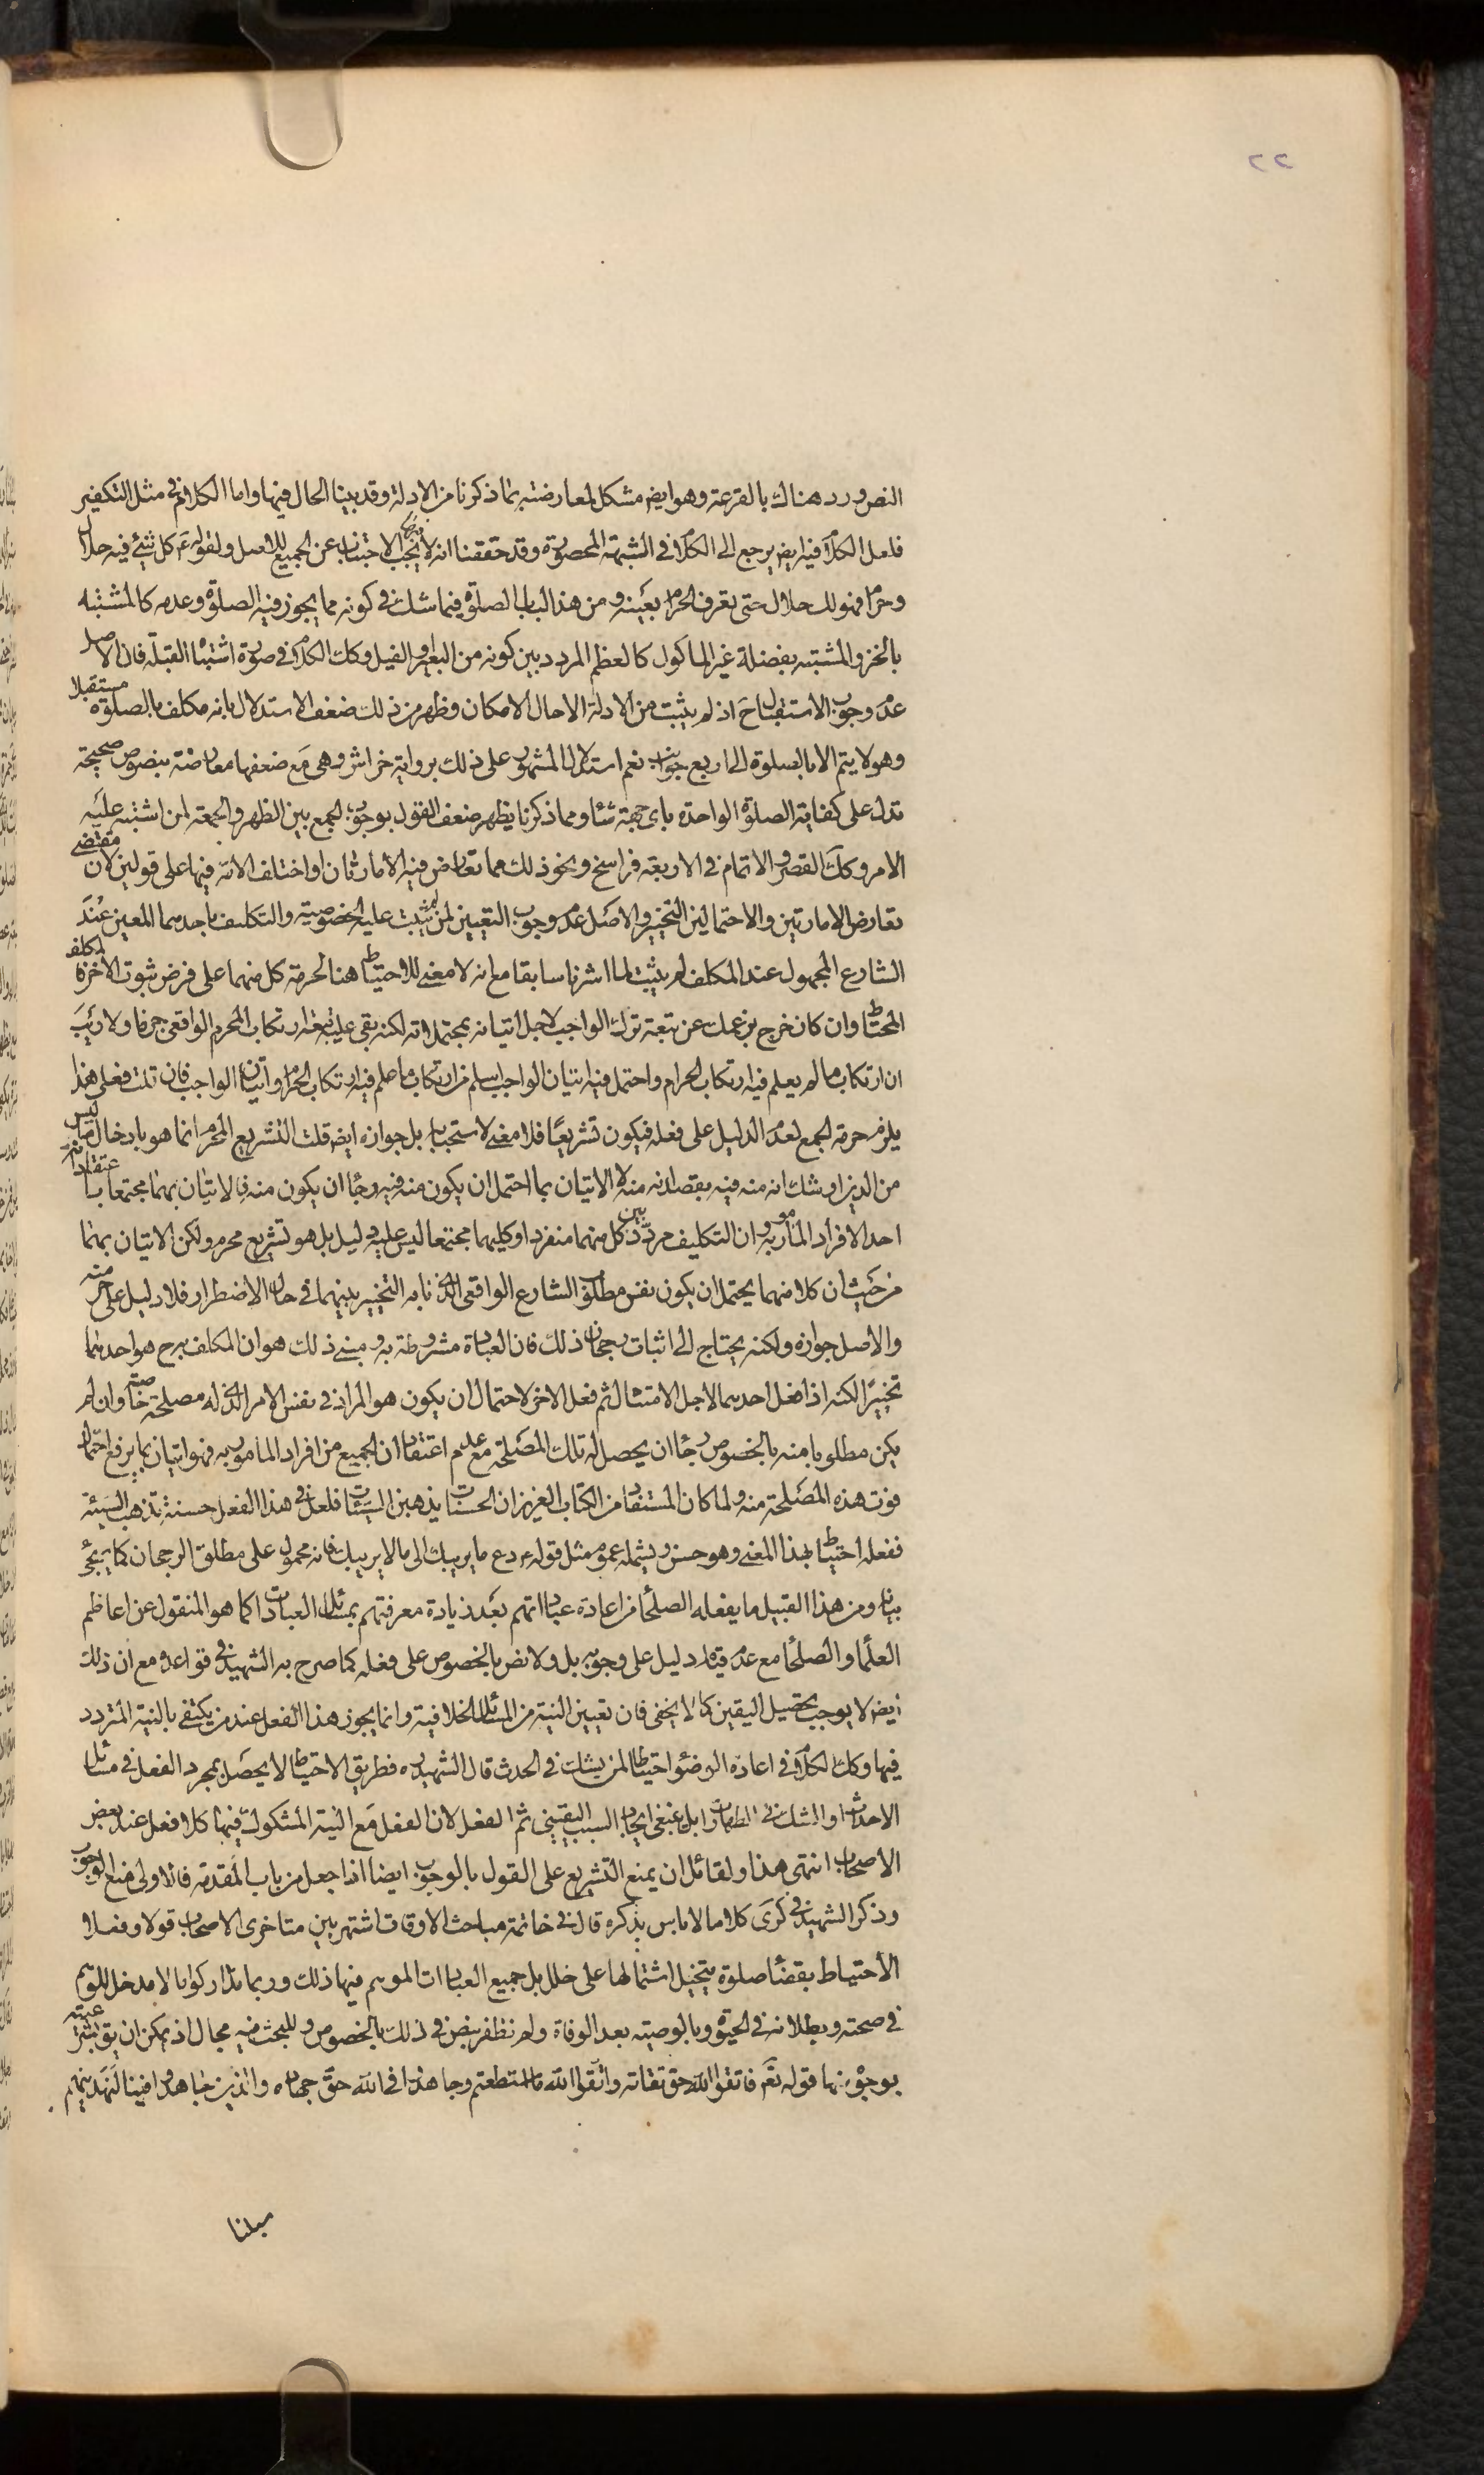 ٢٢
النص ورد هناك بالقرعة وهو ايض مشكل لمعارضته بما ذكرنا من الادلة وقد بينا الحال فيها واما الكلام في مثل التكفير
فلعل الكلام فيه ايض يرجع الى الكلام في الشبهة المحصورة وقد حققنا انه لا يجب الاجتناب عن الجميع للاصل ولقوله ع كل شئ فيه حلال
وحرام فهو لك حلال حتى تعرف الحرام بعينه ومن هذا الباب الصلوة فيما شك في كونه مما يجوز فيه الصلوة وعدمه كالمشتبه
بالخز والمشتبه بفضلة غير الماكول كالعظم المردد بين كونه من البعير والفيل وكك الكلام في صورة اشتباه القبلة فان الاصل
عدم وجوب الاستقبال ح اذ لم يثبت من الادلة الا حال الامكان وظهر من ذلك ضعف الاستدلال بانه مكلف بالصلوة مستقبلا
وهو لا يتم الا بالصلوة الى اربع جوانب نعم استدل المشهور على ذلك برواية خراش وهي مع ضعفها معارضة بنصوص صحيحة
تدل على كفاية الصلوة الواحدة باى جهة شاء ومما ذكرنا يظهر ضعف القول بوجوب الجمع بين الظهر والجمعة لمن اشتبه عليه
الامر وكك القصر والاتمام في الاربعة فراسخ ونحو ذلك مما تعارض فيه الامارتان او اختلف الامة فيها على قولين لان مقتضى
تعارض الامارتين والاحتمالين التخيير والاصل عدم وجوب التعيين لمن لم يثبت عليه الخصوصية والتكليف باحدهما المعين عند
الشارع المجهول عند المكلف لم يثبت لما اشرنا سابقا مع انه لا معنى للاحتياط هنا لحرمة كل منهما على فرض ثبوت الاخر فالمكلف
المحتاط وان كان خرج بزعمك عن تبعة ترك الواجب لاجل اتيانه بمحتملاته لكنه بقى عليه تبعة ارتكاب المحرم الواقعى جزما ولا ريب
ان ارتكاب ما لم يعلم فيه ارتكاب الحرام واحتمل فيه اتيان الواجب اسلم من ارتكاب ما علم فيه ارتكاب الحرام واتيان الواجب فان قلت فعلى هذا
يلزم حرمة الجمع لعدم الدليل على فعله فيكون تشريعا فلا معنى لاستحبابه بل جوازه ايض قلت التشريع المحرم انما هو بادخال ما ليس
من الدين او شك انه منه فيه بقصد انه منه لا الاتيان بما احتمل ان يكون منه فيه رجاء ان يكون منه فالاتيان بهما مجتمعا باعتقاد انه
احد الافراد المامور به وان التكليف مردد بين كل منهما منفردا وكليهما مجتمعا ليس عليه دليل بل هو تشريع محرم ولكن الاتيان بهما
من حيث ان كلا منهما يحتمل ان يكون نفس مطلوب الشارع الواقعى الذى نابه التخيير بينهما في حال الاضطرار فلا دليل على حرمته
والاصل جوازه ولكنه يحتاج الى اثبات رجحان ذلك فان العبادة مشروطة به ومبنى ذلك هو ان المكلف به ح هو احدهما
تخييرا لكنه اذا فعل احدهما لاجل الامتثال ثم فعل الاخر لاحتمال ان يكون هو المراد في نفس الامر الذى له مصلحة خاصة وان لم
يكن مطلوبا منه بالخصوص رجاء ان يحصل له تلك المصلحة مع عدم اعتقاد ان الجميع من افراد المامور به فهو اتيان بما يرفع احتمال
فوت هذه المصلحة منه ولما كان المستفاد من الكتاب العزيز ان الحسنات يذهبن السيئات فلعل في هذا الفعل حسنة تذهب السيئة
ففعله احتياط بهذا المعنى وهو حسن ويشمله عموم مثل قوله ع دع ما يريبك الى ما لا يريبك فانه محمول على مطلق الرجحان كما يجئ
بيانه ومن هذا القبيل ما يفعله الصلحاء من اعادة عباداتهم بعد زيادة معرفتهم بمسائل العبادات كما هو المنقول عن اعاظم
العلماء والصلحاء مع عدم قيام دليل على وجوبه بل ولا نص بالخصوص على فعله كما صرح به الشهيد في قواعده مع ان ذلك
ايض لا يوجب تحصيل اليقين كما لا يخفى فان تعيين النية من المسائل الخلافية وانما يجوز هذا الفعل عند من يكتفى بالنية المتردد
فيها وكك الكلام في اعادة الوضوء احتياطا لمن يشك في الحدث قال الشهيد ره فطريق الاحتياط لا يحصل بمجرد الفعل في مسائل
الاحداث او الشك في الطهارة بل ينبغى ايجاد السبب اليقينى ثم الفعل لان الفعل مع النية المشكوك فيها كلا فعل عند بعض
الاصحاب انتهى هذا ولقائل ان يمنع التشريع على القول بالوجوب ايضا اذا جعل من باب المقدمة فالاولى منع الوجوب
وذكر الشهيد في كرى كلاما لا باس بذكره قال في خاتمة مباحث الاوقات اشتهر بين متاخرى الاصحاب قولا وفعلا
الاحتياط بقضاء صلوة يتخيل اشتمالها على خلل بل جميع العبادات الموهم فيها ذلك وربما تداركوا بالا مدخل للوهم
في صحته وبطلانه في الحيوة وبالوصية بعد الوفاة ولم نظفر بنص في ذلك بالخصوص وللبحث فيه مجال اذ يمكن ان يق بشرعيته
بوجوه منها قوله تع فاتقوا الله حق تقاته واتقوا الله ما استطعتم وجاهدوا في الله حق جهاده والذين جاهدوا فينا لنهدينهم
سبلنا